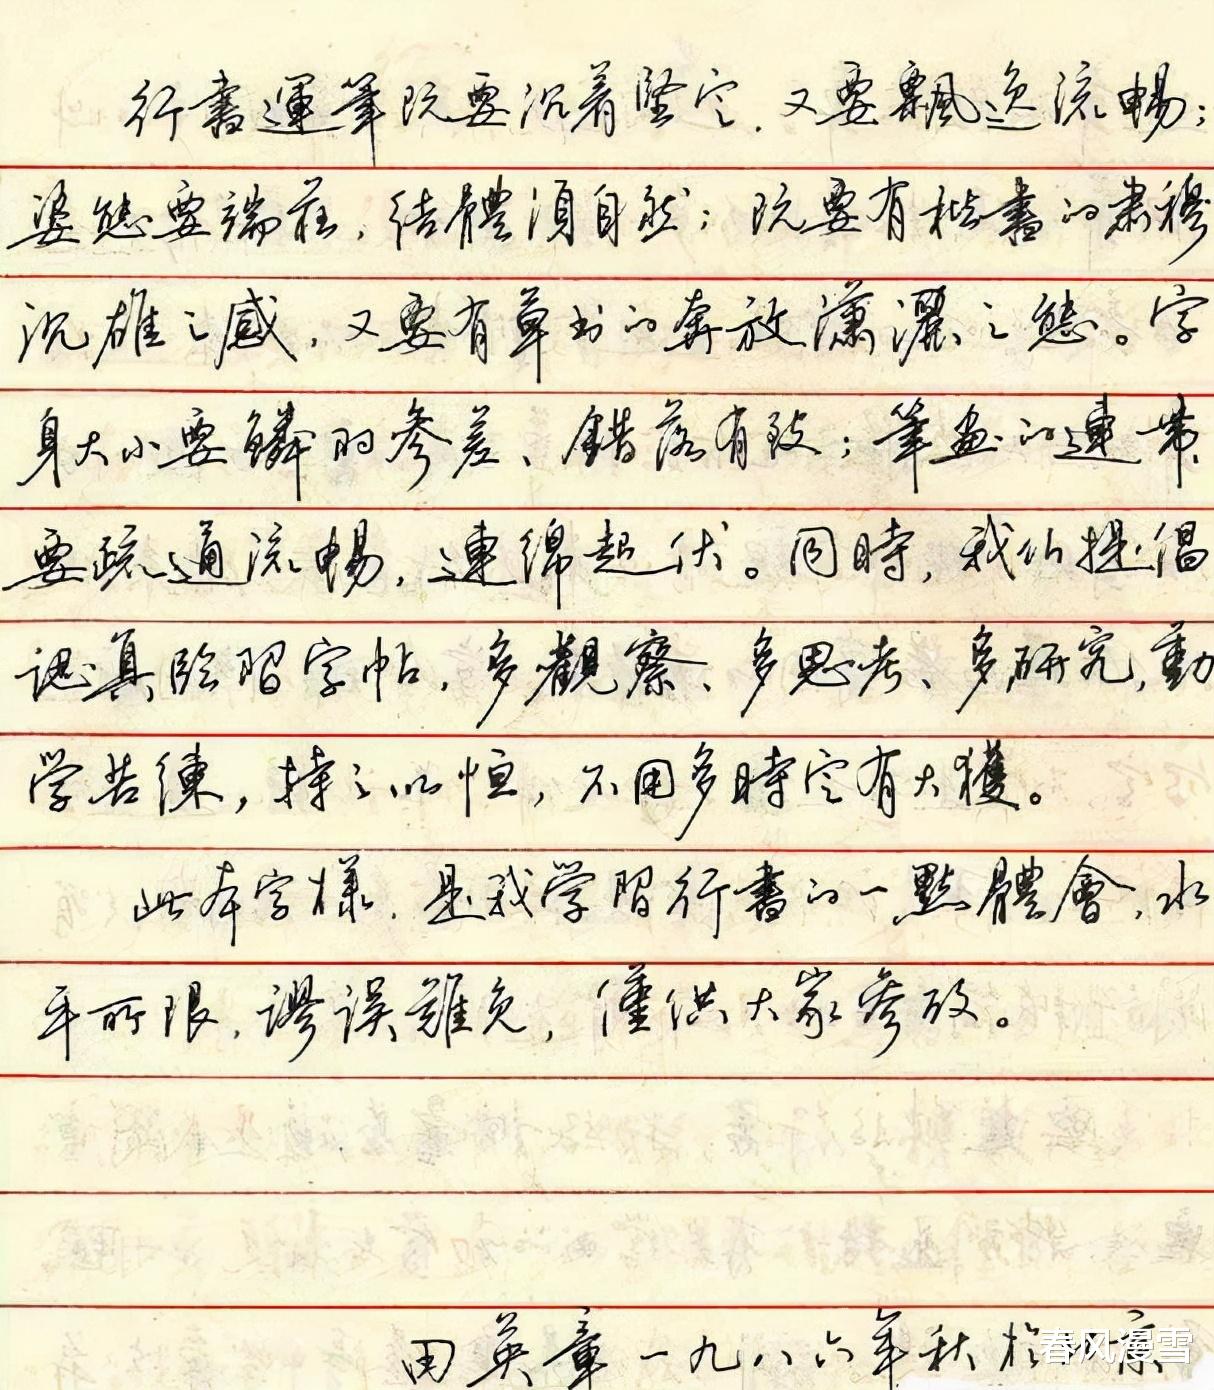 行書運筆既要沉着堅定，又要飄逸流暢；
姿態要端莊，結體須自然；既要有楷書的肅穆
沉雄之感，又要有草书的奔放瀟灑之態。字
身大小要鱗羽參差、錯落有致；筆畫的連帶，
要疏通流暢，連綿起伏。同時，我们提倡
認真臨習字帖，多觀察、多思考、多研究，勤
学苦練，持之以恒，不用多時定有大獲。
此本字樣，是我学習行書的一點體會，水
平所限，謬误難免，僅供大家參攷。
田英章一九八六年秋於京
春风漫雪